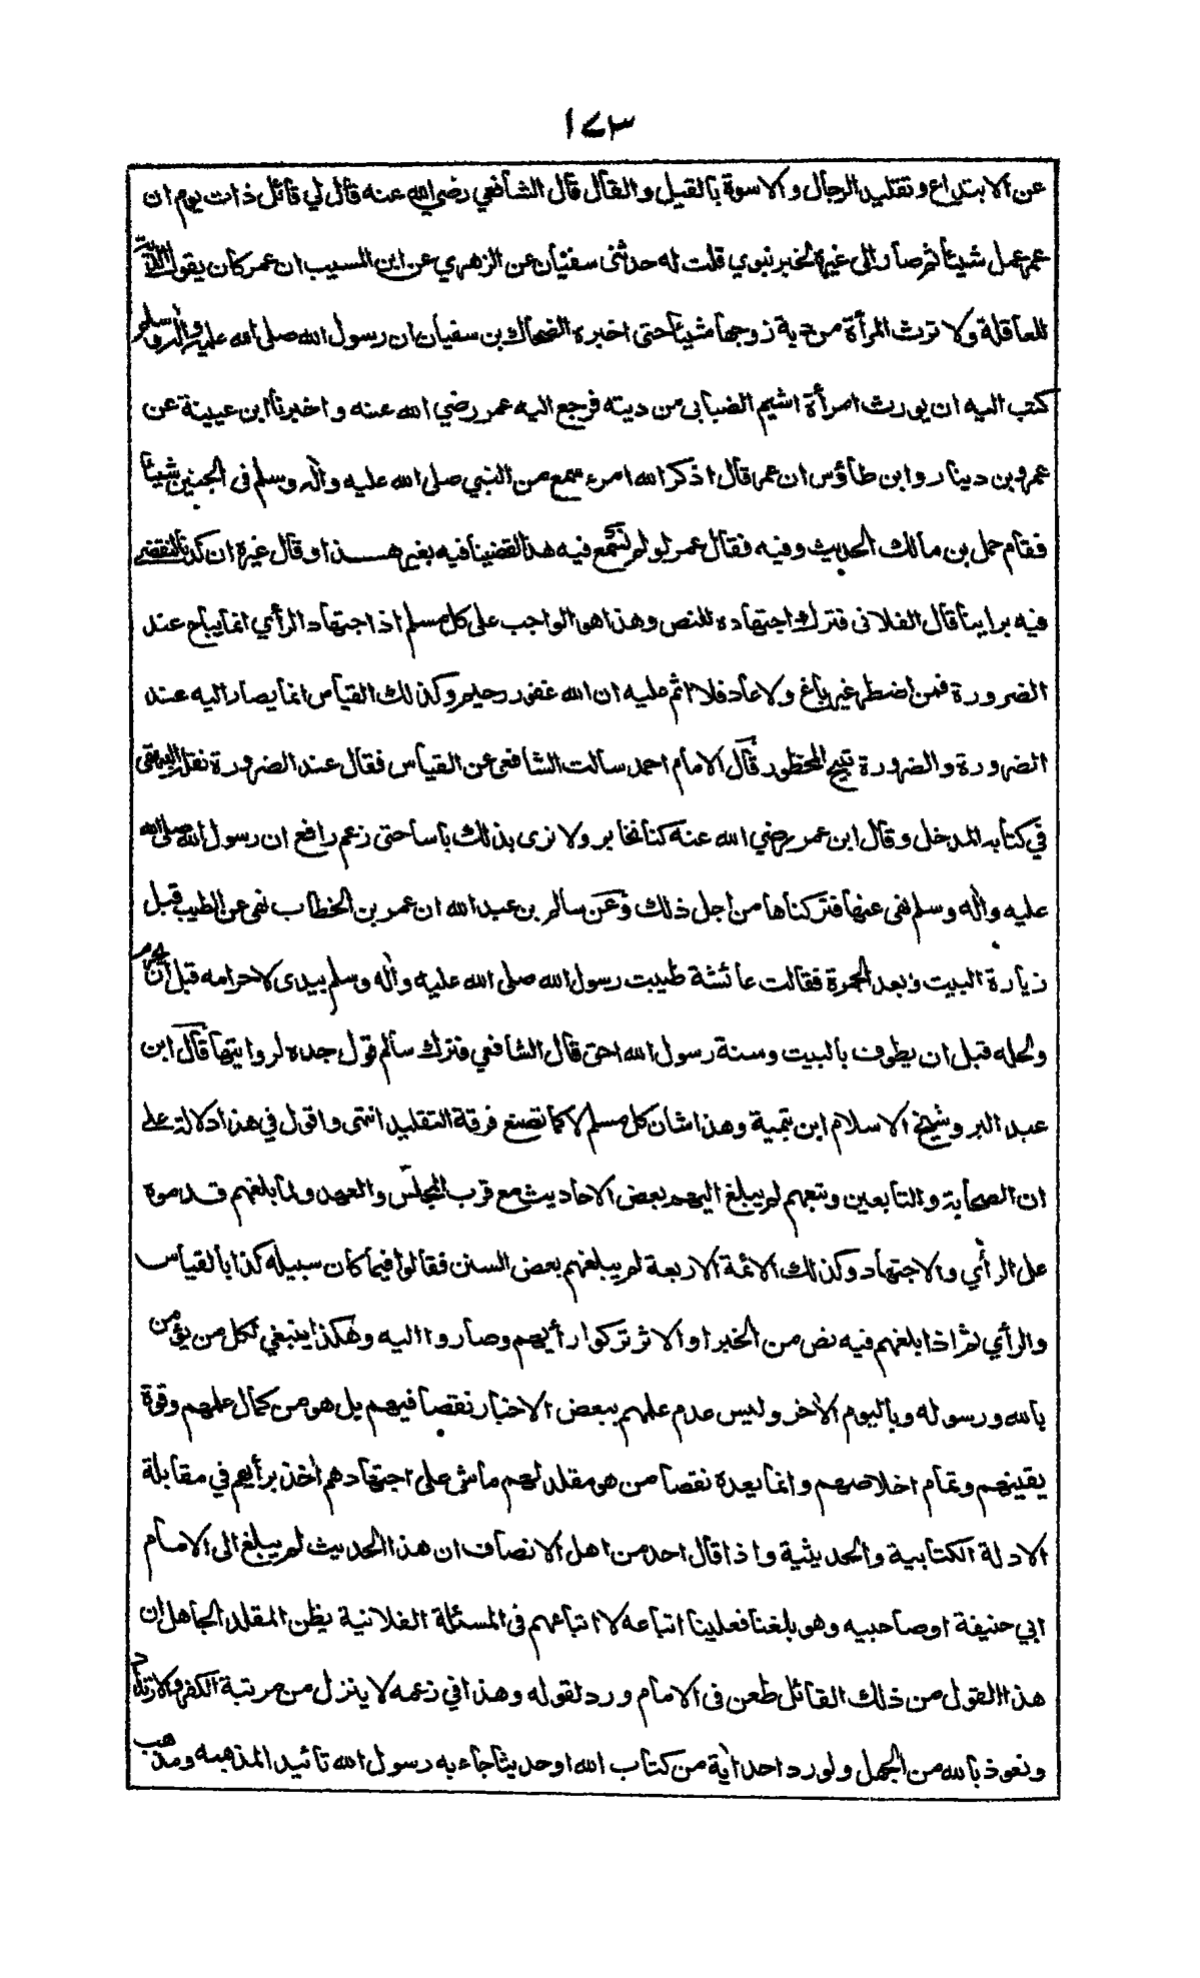 ١٧٣
عن الابتداع وتقليد الرجال والاسوة بالقيل والقال قال الشافعي رضي الله عنه قال لي قائل ذات يوم ان
عمر عمل شيئا ثم صار الى غيره لخبر نبوي قلت له حدثنى سفيان عن الزهري عن ابن المسيب ان عمر كان يقول الدية
للعاقلة ولا ترث المرأة من دية زوجها شيئا حتى اخبره الضحاك بن سفيان ان رسول الله صلى الله عليه واله وسلم
كتب اليه ان يورث امرأة اشيم الضبابى من ديته فرجع اليه عمر رضي الله عنه واخبرنا ابن عيينة عن
عمرو بن دينار وابن طاؤس ان عمر قال اذكر الله امرء سمع من النبي صلى الله عليه واله وسلم فى الجنين شيئا
فقام حمل بن مالك الحديث وفيه فقال عمر لو لم نسمع فيه هذا لقضينا فيه بغير هــذا وقال غيره ان كدنا لنقضي
فيه براينا قال الفلانى فترك اجتهاده للنص وهذا هو الواجب على كل مسلم اذ اجتهاد الرأي انما يباح عند
الضرورة فمن اضطر غير باغ ولا عاد فلا اثم عليه ان الله غفور رحيم وكذلك القياس انما يصار اليه عند
الضرورة والضرورة تبيح المحظور قال الامام احمد سالت الشافعى عن القياس فقال عند الضرورة نقله البيهقى
في كتابه المدخل وقال ابن عمر رضي الله عنه كنا نخابر ولا نرى بذلك باسا حتى زعم رافع ان رسول الله صلى الله
عليه واله وسلم نهى عنها فتركناها من اجل ذلك وعن سالم بن عبد الله ان عمر بن الخطاب نهى عن الطيب قبل
زيارة البيت وبعد الجمرة فقالت عائشة طيبت رسول الله صلى الله عليه واله وسلم بيدى لاحرامه قبل ان يحرم
ولحله قبل ان يطوف بالبيت وسنة رسول الله احق قال الشافعي فترك سالم قول جده لروايتها قال ابن
عبد البر وشيخ الاسلام ابن تيمية وهذا شان كل مسلم لا كما تصنع فرقة التقليد انتهى واقول في هذا دلالة على
ان الصحابة والتابعين وتبعهم لم يبلغ اليهم بعض الاحاديث مع قرب المجلس والعهد ولما بلغهم قدموه
على الرأي والاجتهاد وكذلك الائمة الاربعة لم يبلغهم بعض السنن فقالوا فيما كان سبيله كذا بالقياس
والرأي ثم اذا بلغهم فيه نص من الخبر او الاثر تركوا رأيهم وصاروا اليه وهكذا ينبغي لكل من يؤمن
بالله ورسوله وباليوم الاخر وليس عدم علمهم ببعض الاخبار نقصا فيهم بل هو من كمال علمهم وقوة
يقينهم وتمام اخلاصهم وانما يعده نقصا من هو مقلد لهم ماش على اجتهادهم أخذ برأيهم في مقابلة
الادلة الكتابية والحديثية واذا قال احد من اهل الانصاف ان هذا الحديث لم يبلغ الى الامام
ابي حنيفة او صاحبيه وهو بلغنا فعلينا اتباعه لا اتباعهم فى المسئلة الفلانية يظن المقلد الجاهل ان
هذا القول من ذلك القائل طعن فى الامام ورد لقوله وهذا في زعمه لا ينزل من مرتبة الكفر والارتداد
ونعوذ بالله من الجهل ولو رد احد اية من كتاب الله او حديثا جاء به رسول الله تائيد المذهبه ومذهب